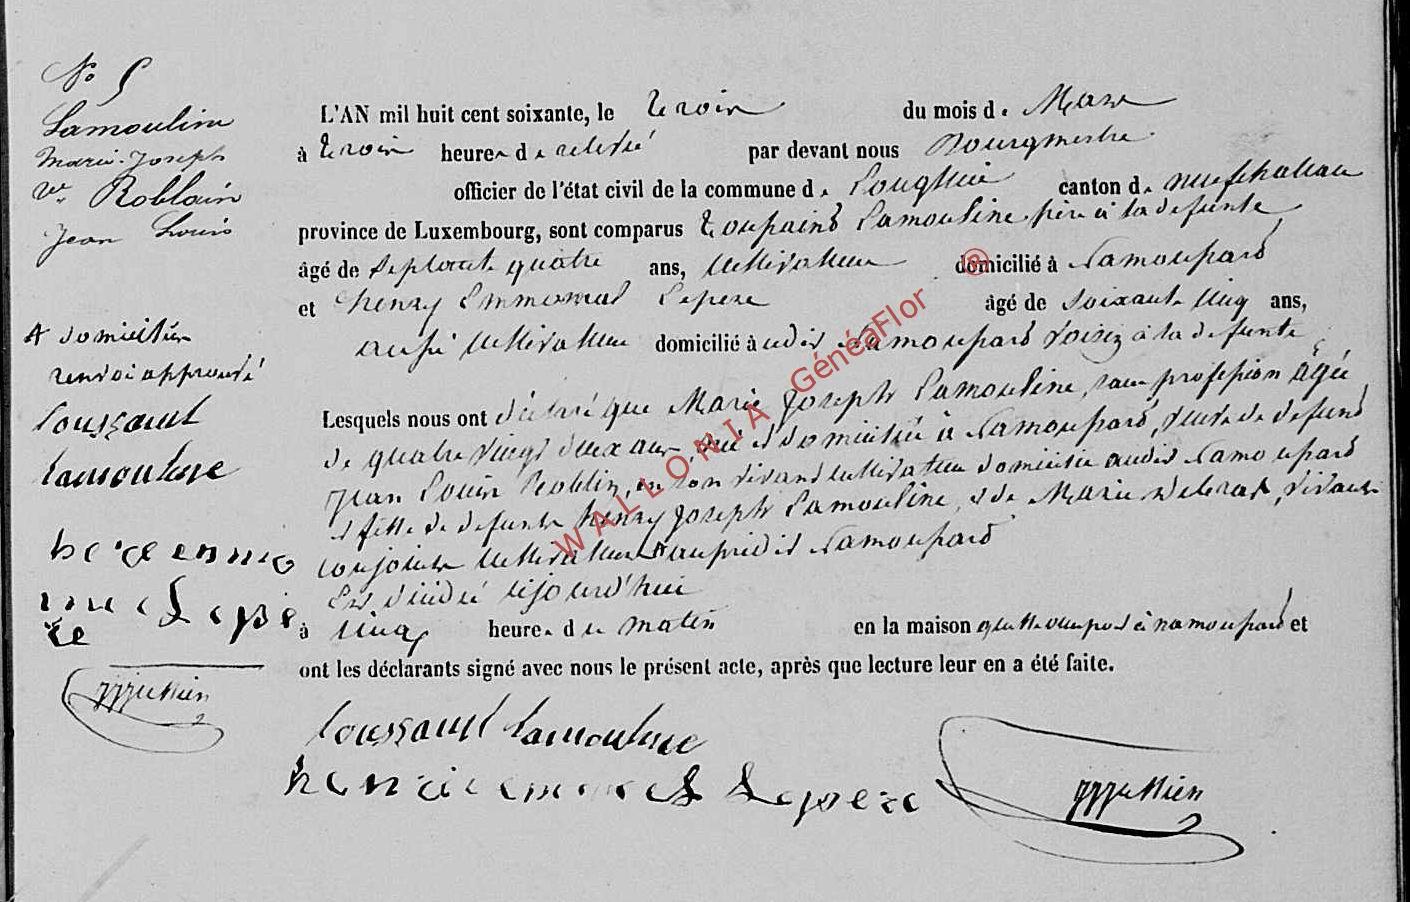 No 5
Lamouline
Marie-Joseph
Ve Roblain
Jean Louis
L'AN mil huit cent soixante, le trois du mois de Mars
à trois heures de relevé par devant nous Bourgmestre
officier de l'état civil de la commune de Longlier canton de neufchateau
province de Luxembourg, sont comparus Toussaint Lamouline frère à la defunte
âgé de septante quatre ans, cultivateur domicilié à Namoussard
et henry Emmonuel Lepere âgé de soixante cinq ans,
aussi cultivateur domicilié à udit Namoussard voisin à la defunte
Lesquels nous ont déclaré que Marie Joseph Lamouline, sans profession âgée
de quatre vingt deux ans, née et domiciliée à Namoussard, veuve de defunt
jean Louis Roblin, en son vivant cultivateur domicilié audit Namoussard
et fille de defunts henry joseph Lamouline, et de Marie vivants
conjoints cultivateurs audit Namoussard
Est décédé cejourd'hui
à cinq heures du matin en la maison à namoussard et
ont les déclarants signé avec nous le présent acte, après que lecture leur en a été faite.
domiciliés
renvoi approuvé
toussaint
lamouline
toussaint lamouline
Lepere
WALLONIA GénéaFlor ®